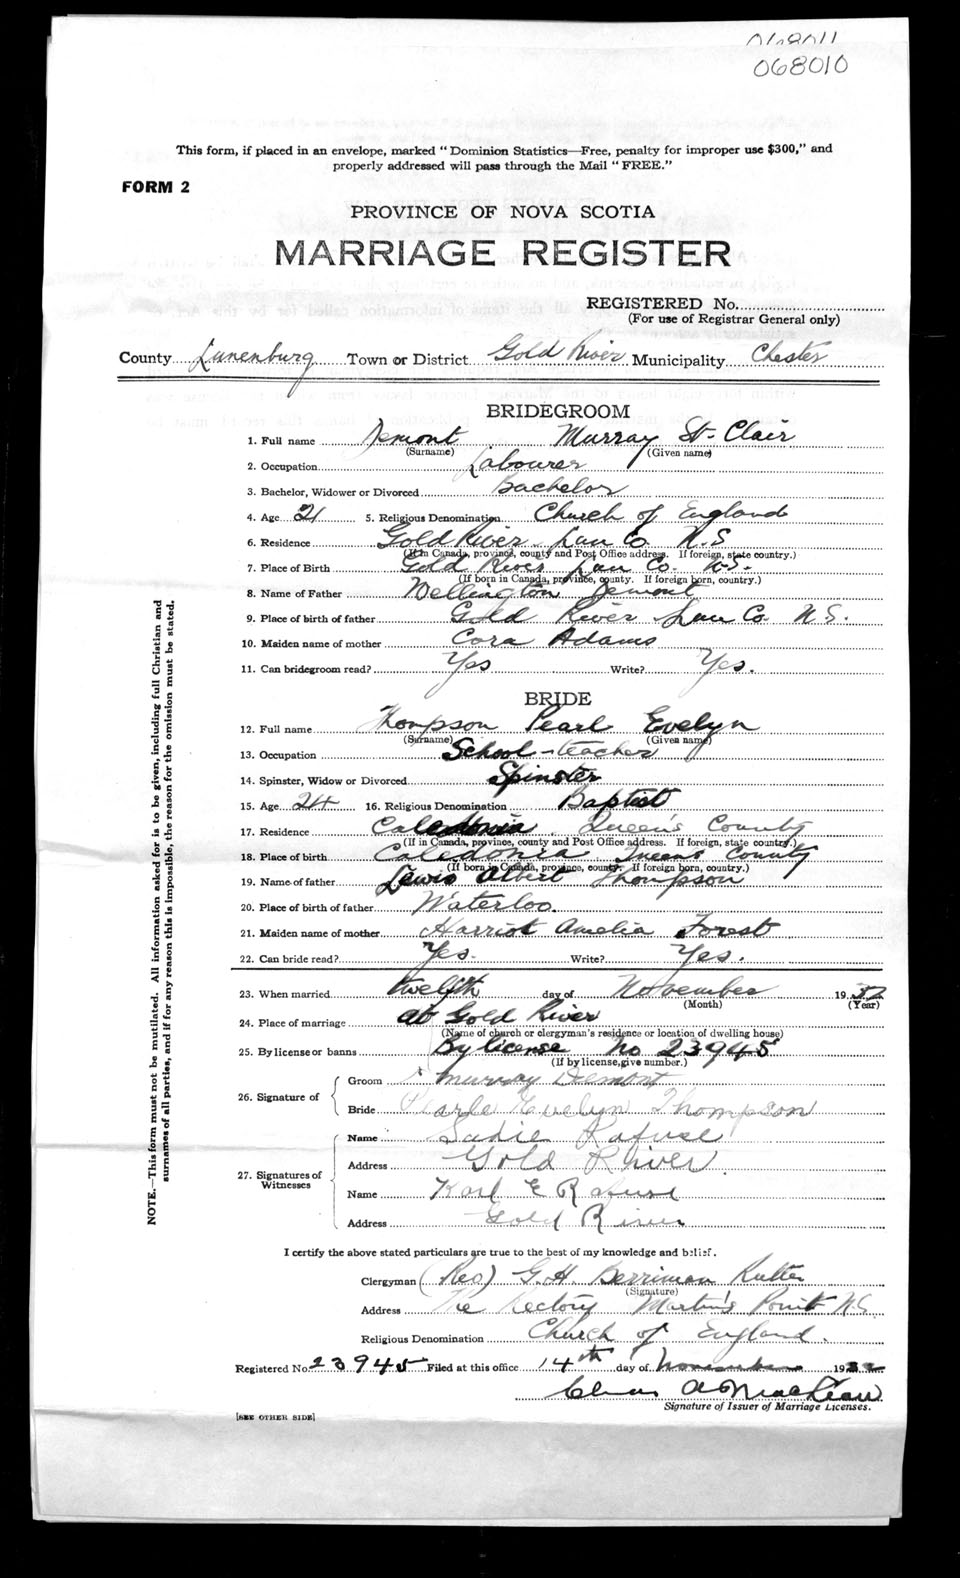 068011
068010
This form, if placed in an envelope, marked "Dominion Statistics—Free, penalty for improper use $300," and
properly addressed will pass through the Mail "FREE."
FORM 2
PROVINCE OF NOVA SCOTIA
MARRIAGE REGISTER
REGISTERED No.
(For use of Registrar General only)
County Lunenburg Town or District Gold River Municipality Chester
BRIDEGROOM
1. Full name Demont Murray St-Clair
(Surname) (Given name)
2. Occupation Labourer
3. Bachelor, Widower or Divorced Bachelor
4. Age 21 5. Religious Denomination Church of England
6. Residence Gold River Lun Co. N.S
(If in Canada, province, county and Post Office address. If foreign, state country.)
7. Place of Birth Gold River Lun Co. N.S.
(If born in Canada, province, county. If foreign born, country.)
8. Name of Father Wellington Demont
9. Place of birth of father Gold River Lun Co. N.S.
10. Maiden name of mother Cora Adams
11. Can bridegroom read? Yes Write? Yes.
BRIDE
12. Full name Thompson Pearl Evelyn
(Surname) (Given name)
13. Occupation School-teacher
14. Spinster, Widow or Divorced Spinster
15. Age 24 16. Religious Denomination Baptist
17. Residence Caledonia. Queen's County
(If in Canada, province, county and Post Office address. If foreign, state country.)
18. Place of birth Caledonia Queens County
(If born in Canada, province, county. If foreign born, country.)
19. Name of father Lewis Albert Thompson
20. Place of birth of father Waterloo.
21. Maiden name of mother Harriot Amelia Forest
22. Can bride read? Yes. Write? Yes.
23. When married twelfth day of November 1932
(Month) (Year)
24. Place of marriage at Gold River
(Name of church or clergyman's residence or location of dwelling house)
25. By license or banns By license no 23945
(If by license, give number.)
26. Signature of Groom Murray Demont
Bride Pearle Evelyn Thompson
27. Signatures of Witnesses
Name Sadie Rafuse
Address Gold River.
Name Karl E Rafuse
Address Gold River
I certify the above stated particulars are true to the best of my knowledge and belief.
Clergyman (Rev) G.H Berriman Rutter
(Signature)
Address The Rectory Martin's Point N.S
Religious Denomination Church of England.
Registered No. 23945 Filed at this office 14th day of November 1932
Chas A MacLean
Signature of Issuer of Marriage Licenses.
[SEE OTHER SIDE]
NOTE.—This form must not be mutilated. All information asked for is to be given, including full Christian and
surnames of all parties, and if for any reason this is impossible, the reason for the omission must be stated.